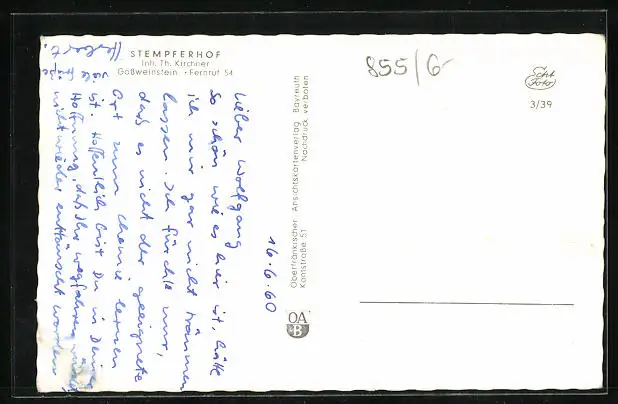 STEMPFERHOF
Inh. Th. Kirchner
Gößweinstein · Fernruf 54
855/6-
Echt
Foto
3/39
Oberfränkischer Ansichtskartenverlag Bayreuth
Kantstraße 51 Nachdruck verboten
OA
B
16.6.60
Lieber Wolfgang
So schön wie es hier ist, hätte
ich mir gar nicht träumen
lassen. Ich fürchte nur,
daß es nicht der geeignete
Ort zum Chemie lernen
ist. Hoffentlich bist Du in Deiner
Hoffnung, daß Ihr wegfahren
nicht wieder enttäuscht worden.
Herbert